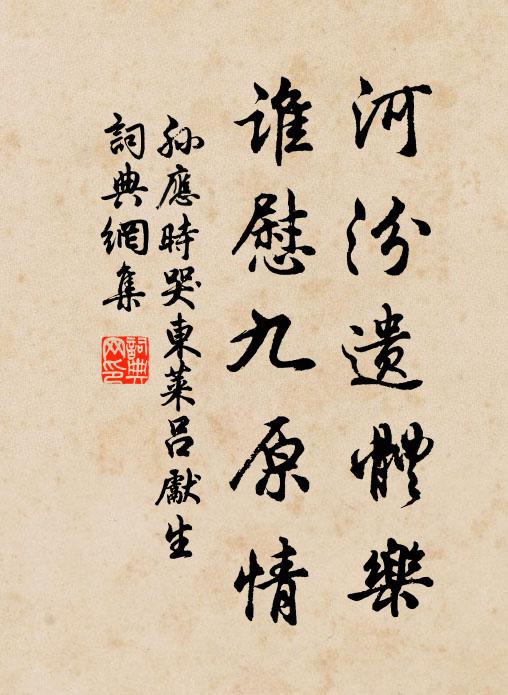 河汾遺體樂
誰慰九原情
孫應時哭東萊呂獻生
詞典網集
詞典網印